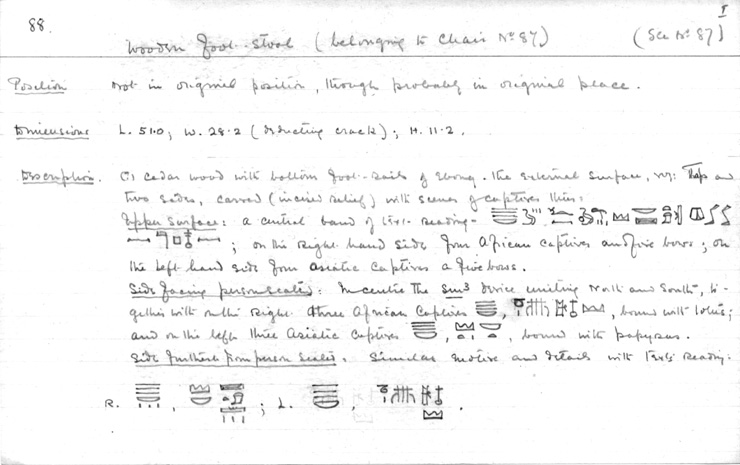 88.
I
Wooden foot-stool (belonging to Chair Nº 87)
(See Nº 87)
Position
Not in original position, though probably in original place.
Dimensions
L. 51.0; W. 28.2 (deducting crack); H. 11.2.
Description.
Of cedar wood with bottom foot-rails of ebony. The external surface, viz: Top and
two sides, carved (incised relief) with scenes of captives thus:
Upper surface: a central band of text reading-
; on the right hand side four African captives and five bows; on
the left hand side four Asiatic captives & five bows.
Side facing person seated: In centre the sm³ device uniting North and South, to-
gether with on the right three African captives , , bound with lotus;
and on the left three Asiatic captives , , bound with papyrus.
Side furthest from person seated. Similar motive and details with texts reading:
R. , ; L. , .